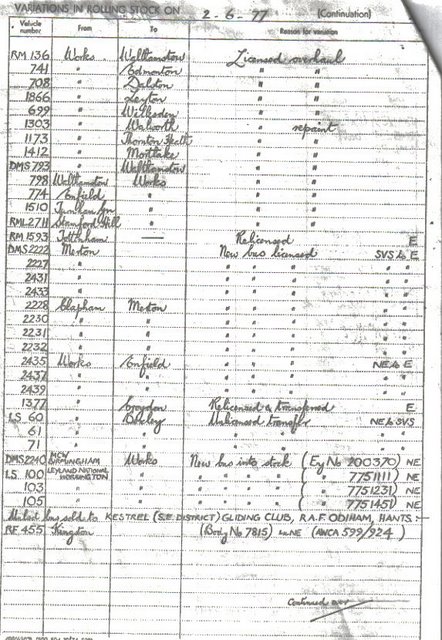 VARIATIONS IN ROLLING STOCK ON 2-6-77 (Continuation)
Vehicle number From To Reason for variation
RM 136 Works Walthamstow Licensed overhaul
741 " Edmonton " "
708 " Dalston " "
1866 " Leyton " "
699 " Willesden " "
1303 " Walworth " repaint
1173 " Thornton Heath " "
1412 " Mortlake " "
DMS 793 " Walthamstow
798 Walthamstow Works
774 Enfield "
1510 Turnham Grn "
RML 2711 Stamford Hill "
RM 1593 Tottenham — Relicensed E
DMS 2222 Merton New bus licensed SVS to E
2227 " " " " " "
2431 " " " " " "
2433 " " " " " "
2228 Clapham Merton " " " " "
2230 " " " " " " "
2231 " " " " " " "
2232 " " " " " " "
2435 Works Enfield " " " NE to E
2437 " " " " " " "
2439 " " " " " " "
1377 " Croydon Relicensed & transferred E
LS 60 " Bexley Unlicensed transfer NE to SVS
61 " " " " "
71 " " " " "
DMS 2240 MCW BIRMINGHAM Works New bus into stock (Eng No 200370) NE
LS 100 LEYLAND NATIONAL WORKINGTON " " " " " ( " 7751111) NE
103 " " " " " " ( " 7751231) NE
105 " " " " " " ( " 7751451) NE
bus sold to KESTREL (S.E. DISTRICT) GLIDING CLUB, R.A.F. ODIHAM, HANTS. :-
RF 455 Kingston (Body No 7815) NE (AWCA 599/924)
Continued over